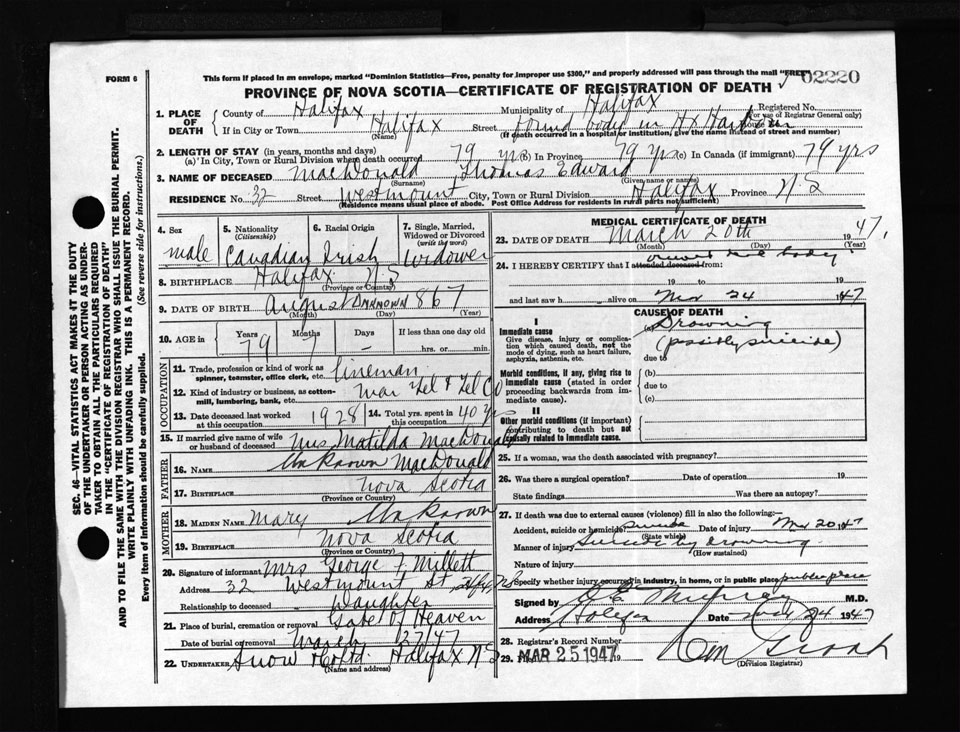 FORM 6
This form if placed in an envelope, marked "Dominion Statistics—Free, penalty for improper use $300," and properly addressed will pass through the mail "FREE"
02220
PROVINCE OF NOVA SCOTIA—CERTIFICATE OF REGISTRATION OF DEATH
SEC. 46—VITAL STATISTICS ACT MAKES IT THE DUTY
OF THE UNDERTAKER OR PERSON ACTING AS UNDER-
TAKER TO OBTAIN ALL THE PARTICULARS REQUIRED
IN THE "CERTIFICATE OF REGISTRATION OF DEATH"
AND TO FILE THE SAME WITH THE DIVISION REGISTRAR WHO SHALL ISSUE THE BURIAL PERMIT.
WRITE PLAINLY WITH UNFADING INK. THIS IS A PERMANENT RECORD.
Every item of Information should be carefully supplied. (See reverse side for instructions.)
1. PLACE OF DEATH
County of Halifax Municipality of Halifax Registered No.
(For use of Registrar General only)
If in City or Town Halifax Street found body in Hx Harbour
(Name) (If death occurred in a hospital or institution, give the name instead of street and number)
2. LENGTH OF STAY (in years, months and days)
(a) In City, Town or Rural Division where death occurred 79 yrs (b) In Province 79 yrs (c) In Canada (if immigrant) 79 yrs
3. NAME OF DECEASED MacDonald Thomas Edward
(Surname) (Given name or names)
RESIDENCE No. 32 Street Westmount City, Town or Rural Division Halifax Province N.S
(Residence means usual place of abode. Post Office Address for residents in rural parts not sufficient)
4. Sex
male
5. Nationality
(Citizenship)
Canadian
6. Racial Origin
Irish
7. Single, Married,
Widowed or Divorced
(write the word)
Widower
8. BIRTHPLACE Halifax N.S
(Province or Country)
9. DATE OF BIRTH August Unknown 867
(Month) (Day) (Year)
10. AGE in
Years 79
Months 7
Days –
If less than one day old
hrs. or min.
OCCUPATION
11. Trade, profession or kind of work as
spinner, teamster, office clerk, etc. lineman
12. Kind of industry or business, as cotten-
mill, lumbering, bank, etc. Mar Tel & Tel Co
13. Date deceased last worked
at this occupation 1928
14. Total yrs. spent in
this occupation 40 yrs
15. If married give name of wife
or husband of deceased Mrs Matilda MacDonald
FATHER
16. NAME Unknown MacDonald
17. BIRTHPLACE Nova Scotia
(Province or Country)
MOTHER
18. MAIDEN NAME Mary Unknown
19. BIRTHPLACE Nova Scotia
(Province or Country)
20. Signature of informant Mrs George F Millett
Address 32 Westmount St Hfx, N.S
Relationship to deceased Daughter
21. Place of burial, cremation or removal Gate of Heaven
Date of burial or removal March 27/47
22. UNDERTAKER Snow & Co Ltd. Halifax N.S
(Name and address)
MEDICAL CERTIFICATE OF DEATH
23. DATE OF DEATH March 20th 1947.
(Month) (Day) (Year)
24. I HEREBY CERTIFY that I attended deceased from: viewed the body
19 to 19
and last saw h alive on Mar 24 1947
CAUSE OF DEATH
I
Immediate cause
Give disease, injury or complica-
tion which caused death, not the
mode of dying, such as heart failure,
asphyxia, asthenia, etc.
(a) Drowning
(possibly suicide)
due to
Morbid conditions, if any, giving rise to
immediate cause (stated in order
proceeding backwards from im-
mediate cause).
(b)
due to
(c)
II
Other morbid conditions (if important)
contributing to death but not
causally related to immediate cause.
25. If a woman, was the death associated with pregnancy?
26. Was there a surgical operation? Date of operation 19
State findings Was there an autopsy?
27. If death was due to external causes (violence) fill in also the following:—
Accident, suicide or homicide? Suicide Date of injury Mar 20 1947
(State which)
Manner of injury Suicide by drowning
(How sustained)
Nature of injury
Specify whether injury occurred in industry, in home, or in public place public place
Signed by Murray M.D.
Address Halifax Date March 24 1947
28. Registrar's Record Number
29. MAR 25 1947 19
(Division Registrar)